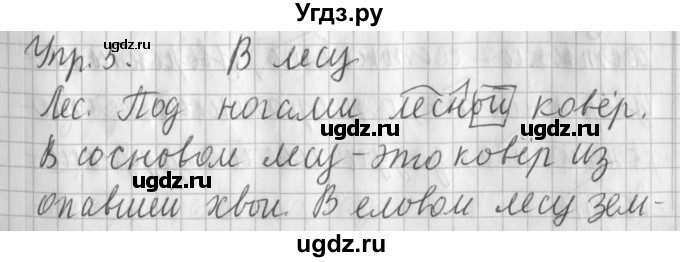 Угдз.ру
Упр. 5. В лесу
Лес. Под ногами лесной ковёр.
ugdz.ru ugdz.ru
В сосновом лесу – это ковёр из
ugdz.ru
опавшей хвои. В еловом лесу зем-
ugdz.ru